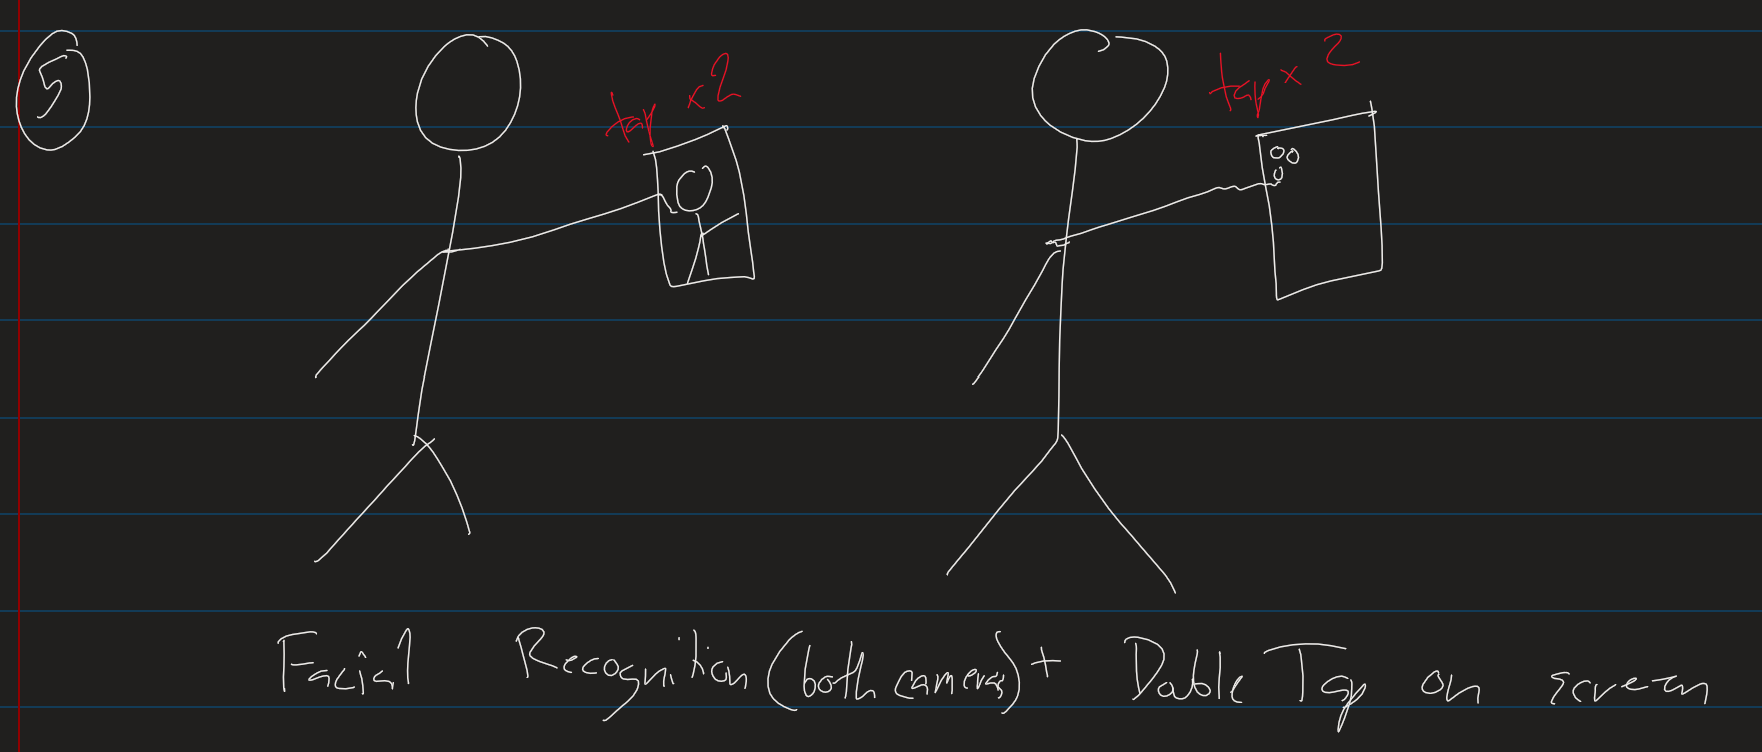 5
tap x2
tap x 2
Facial Recognition (both cameras) + Double Tap on screen